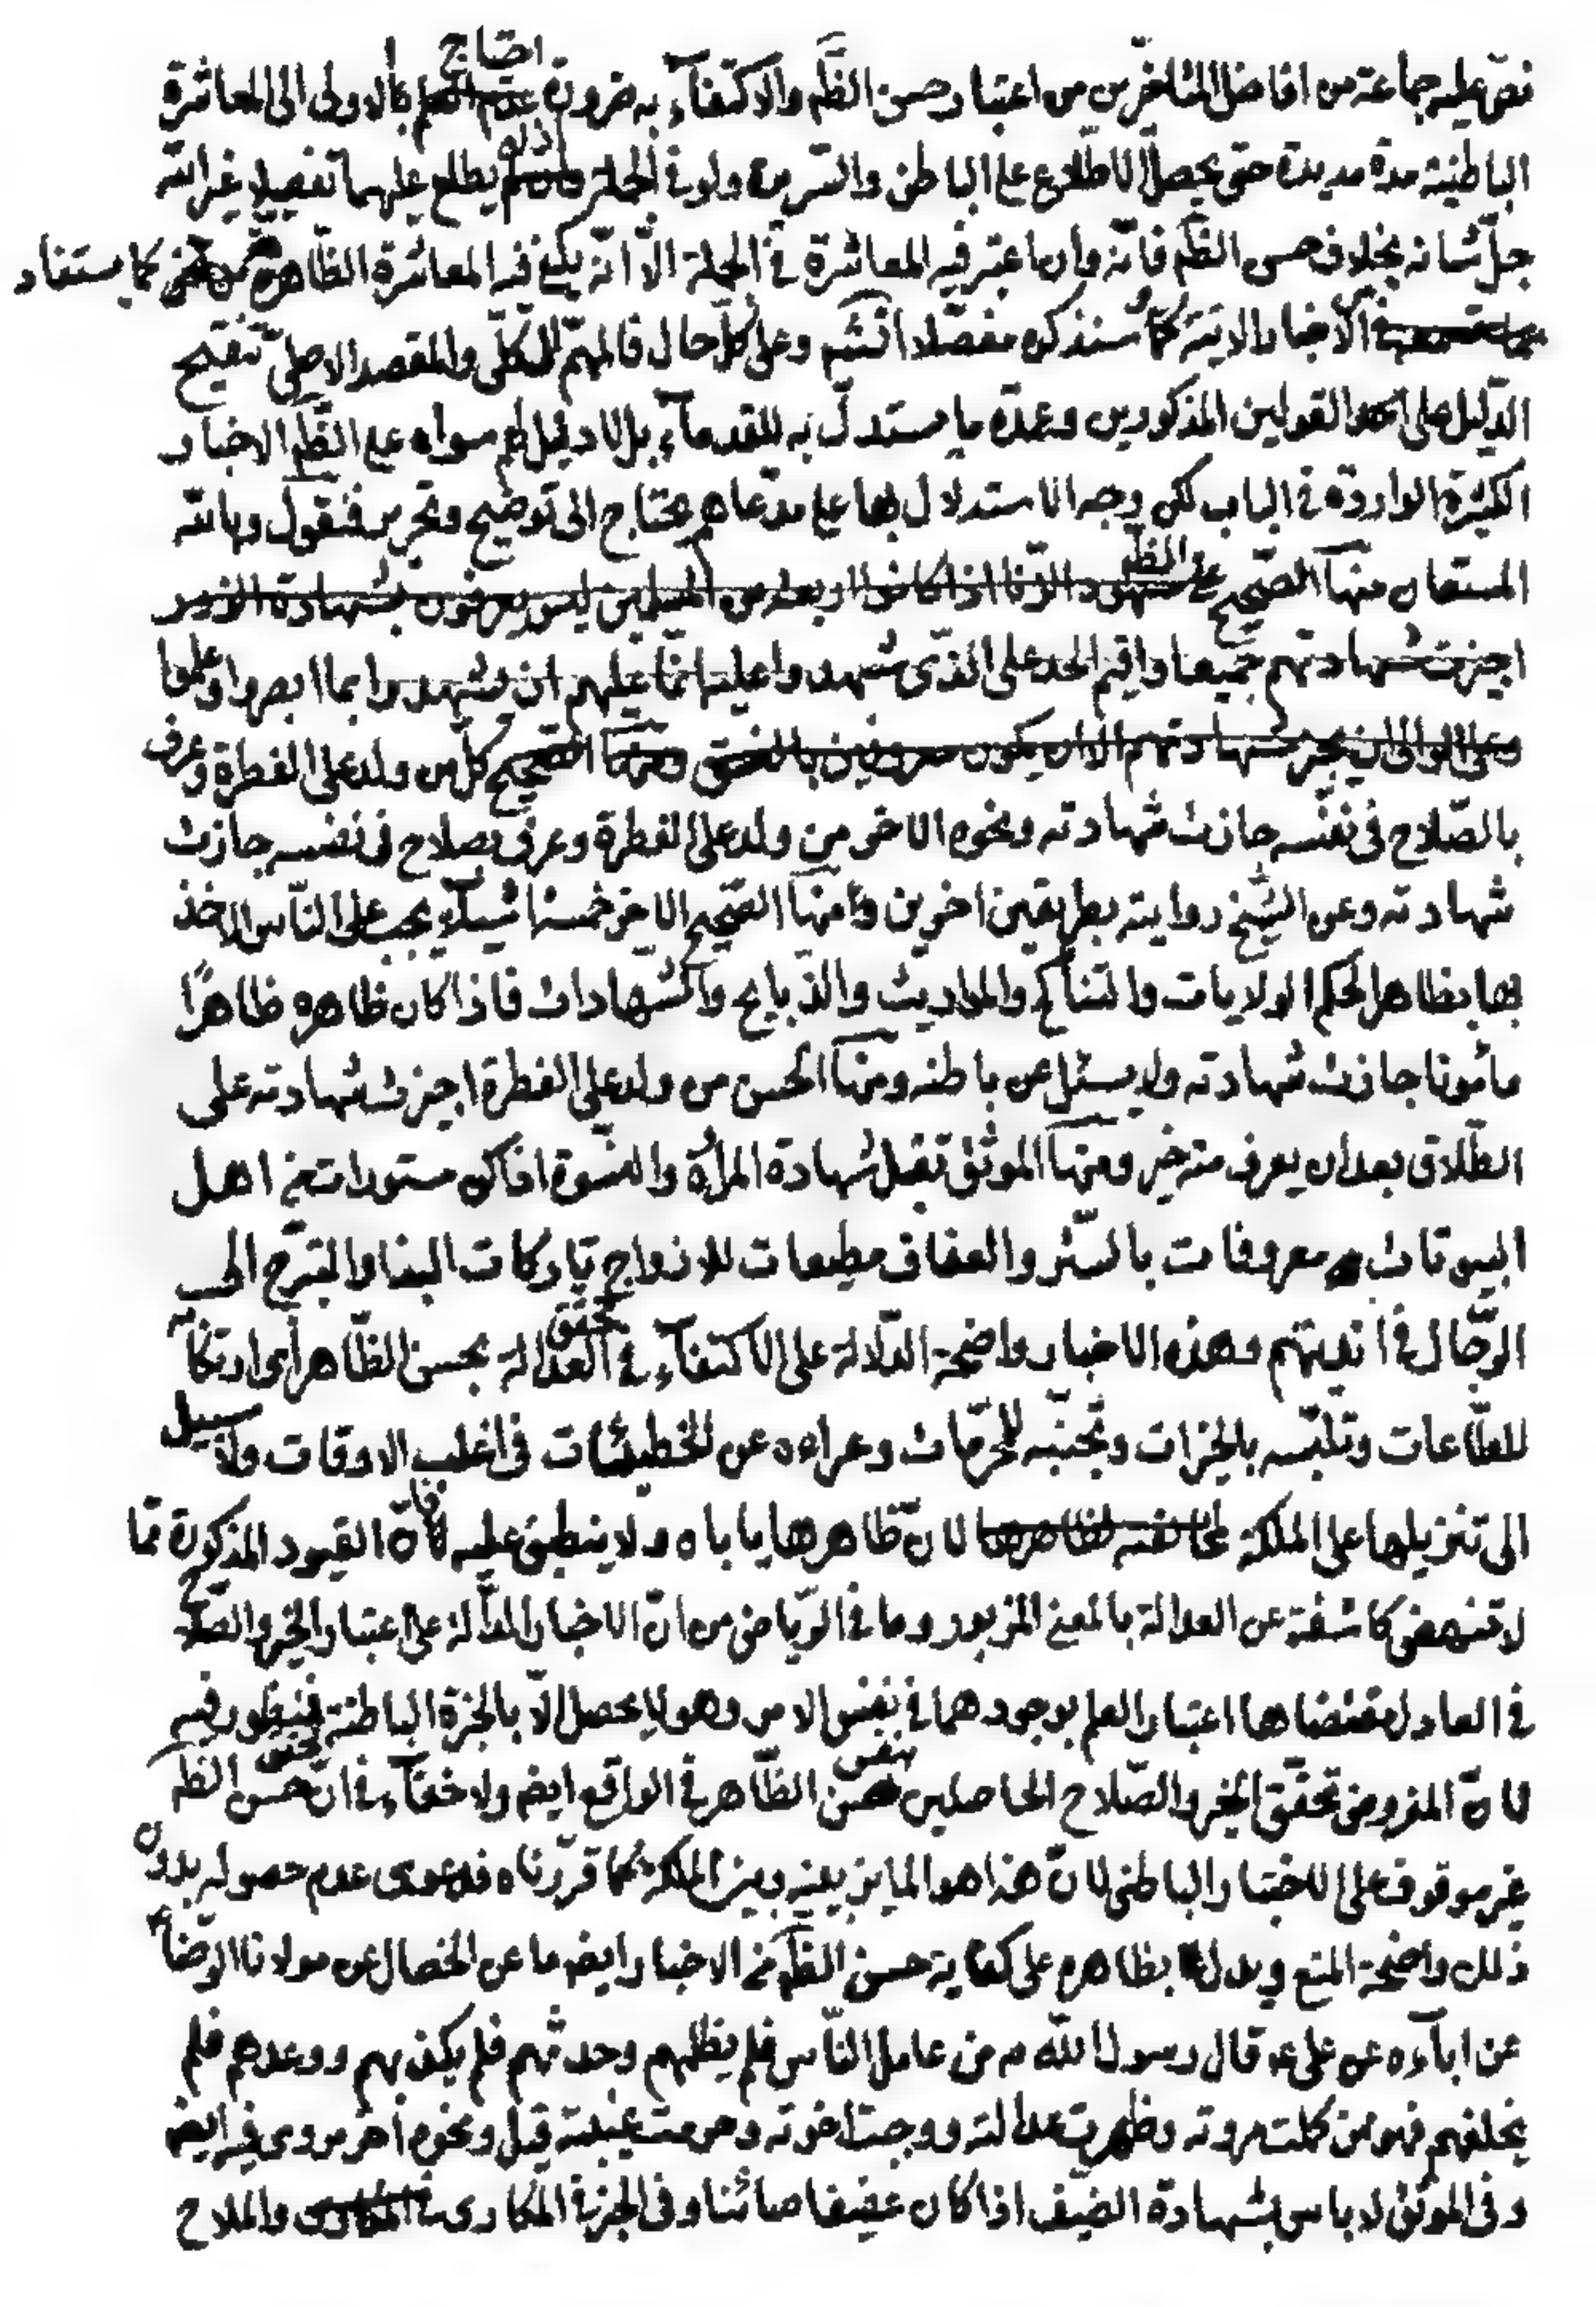 نصّ عليه جماعة من افاضل المتاخّرين من اعتبار حسن الظّم والاكتفآء به ضرورة احتياج الاولى الى المعاشرة
الباطنيّة مدة مديدة حتى يحصل الاطّلاع على الباطن والسّريرة ولو في الجملة اذ لم يطلع عليهما تفصيلا غير الله
جلّ شانه بخلاف حسن الظّم فانّه وان اعتبر فيه المعاشرة في الجملة الّا انّه يكفي فيه المعاشرة الظّاهرة كما يستفاد
من الاخبار الاتية كما سنذكره مفصّلا انشم وعلى كلّ حال فالمهمّ الكلّى والمقصد الاصلىّ تنقيح
الدّليل على القولين المذكورين وعمدة ما يستدلّ به للقدمآء بل لا دليل لهم سواه على الظّم الاخبار
الكثيرة الواردة في الباب لكن وجه الاستدلال بها على مدّعاهم يحتاج الى توضيح وتحرير فنقول وبالله
المستعان منهآ الصّحيح على شهود الزّنا اذا كانوا اربعة من المسلمين ليس يعرفون بشهادة الزور
اجيزت شهادتهم جميعا واقيم الحد على الذّى شهدوا عليه انّما عليهم ان يشهدوا بما ابصروا وعلموا
وعلى الوالى ان يجيز شهادتهم الا ان يكون معروفين بالفسق ومنهآ الصّحيح كل من ولد على الفطرة وعرف
بالصّلاح في نفسه جازت شهادته ونحوه الاخر من ولد على الفطرة وعرف بصلاح في نفسه جازت
شهادته وعن الشّيخ روايته بطريقين اخرين ومنهآ الصّحيح الاخر خمسة اشيآء يجب على النّاس الاخذ
بها بظاهر الحكم الولايات والتناكح والمواريث والذّبايح والشّهادات فاذا كان ظاهره ظاهرًا
مأمونا جازت شهادته ولا يسئل عن باطنه ومنهآ الحسن من ولد على الفطرة اجيزت شهادته على
الطّلاق بعد ان يعرف منه خير ومنهآ الموثّق تقبل شهادة المرأة والنّسوة اذا كن مستورات من اهل
البيوتات معروفات بالسّتر والعفاف مطيعات للازواج تاركات البذا والتبرّج الى
الرّجال في انديتهم وهذه الاخبار واضحة الدّلالة على الاكتفآء في تحقق العدالة بحسن الظّاهر اى ارتكابه
للطّاعات وتلبّسه بالخيرات وتجنّبه للمحرّمات وعراءه عن الخطيئات في اغلب الاوقات ولا سبيل
الى تنزيلها على الملكة لمخالفته لظاهرها لانّ ظاهرها ياباه ولا ينطبق عليه فانّ القيود المذكورة ممّا
لا تنهض كاشفة عن العدالة بالمعنى المزبور وما في الرّياض من انّ الاخبار الدّالة على اعتبار الخير والصّلاح
في العادل مقتضاها اعتبار العلم بوجودهما في نفس الامر وهو لا يحصل الّا بالخبرة الباطنة فمنظور فيه
لانّ المفروض تحقّق الخير والصّلاح الحاصلين بنفس حسن الظّاهر في الواقع ايضا ولا خفآء في انّ تحقق حسن الظّم
غير موقوف على الاختبار الباطنى لانّ هذا هو المايز بينه وبين الملكة كما قرّرناه فدعوى عدم حصوله بدون
ذلك واضحة المنع ويدل بظاهره على كفاية حسن الظّم من الاخبار ايضا ما عن الخصال عن مولانا الرّضا ع
عن ابآءه عن على ع قال رسول الله ص من عامل النّاس فلم يظلمهم وحدثهم فلم يكذبهم ووعدهم فلم
يخلفهم فهو من كملت مروته وظهرت عدالته ووجبت اخوته وحرمت غيبته قيل ونحوه اخر مروى فيه ايضا
وفي الموثق لا باس بشهادة الضيف اذا كان عفيفا صائنا وفي الخبر المكارى والملاح